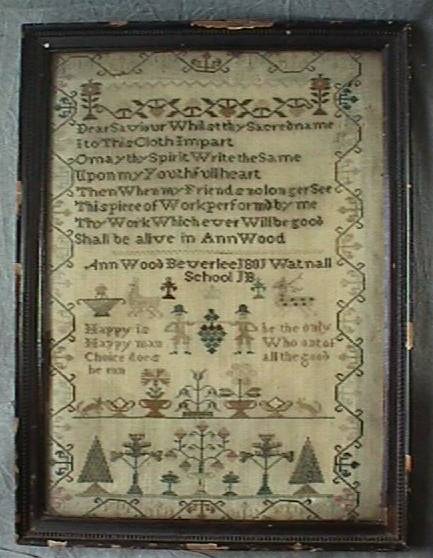 Dear Saviour Whilst thy Sacred name
I to This Cloth Impart
O may thy Spirit Write the Same
Upon my Youthfull heart
Then When my Friends no longer See
This piece of Work performd by me
Thy Work Which ever Will be good
Shall be alive in Ann Wood
Ann Wood Beverlee 1801 Watnall
School
Happy is be the only
Happy man Who out of
Choice does all the good
he can